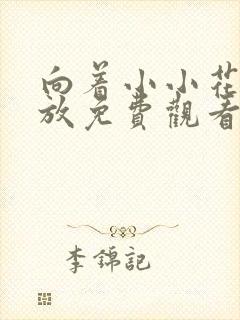 向着小小花
放免費觀看
李錦記